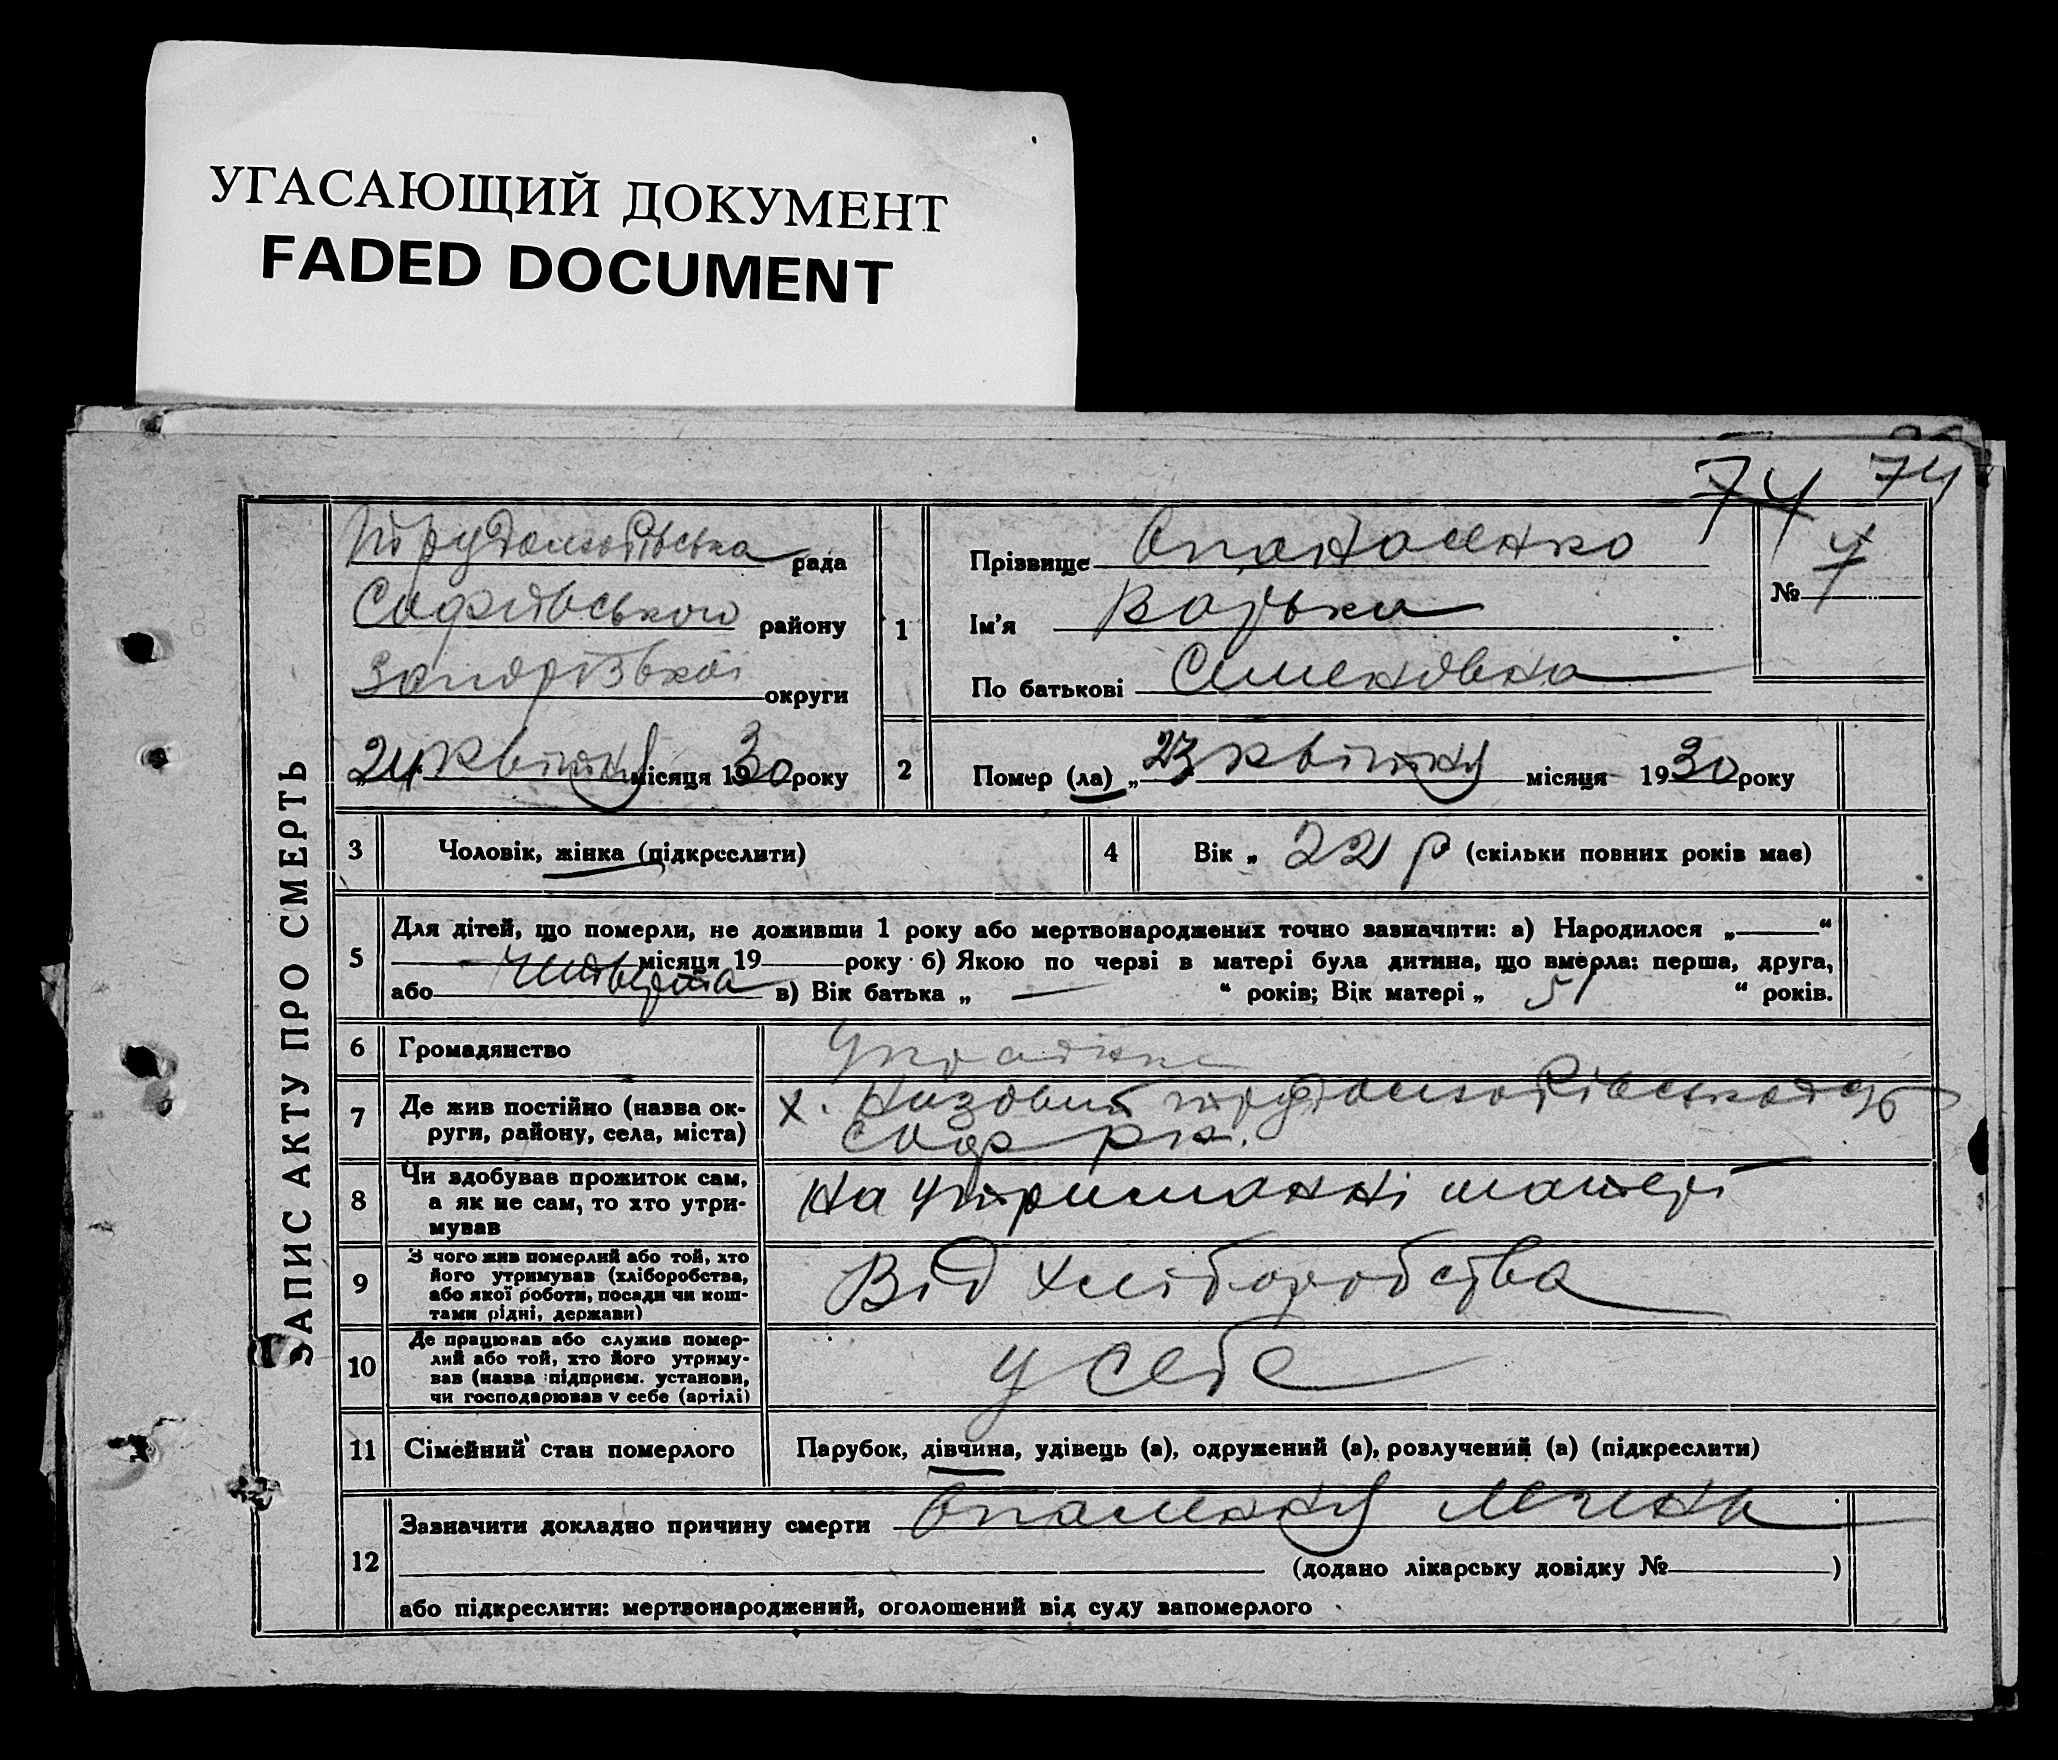 УГАСАЮЩИЙ ДОКУМЕНТ
FADED DOCUMENT
74 74
ЗАПИС АКТУ ПРО СМЕРТЬ
Трудолюбівська рада
Софіївського району
Запорізької округи
„24“ квітня місяця 1930 року
1
Прізвище Опанасенко
Ім'я Варька
По батькові Семеновна
№ 7
2
Помер (ла) „23 квітня місяця 1930 року
3 Чоловік, жінка (підкреслити)
4 Вік „ 22 р (скільки повних років має)
5
Для дітей, що померли, не доживши 1 року або мертвонароджених точно зазначити: а) Народилося „——“
місяця 19 року б) Якою по черзі в матері була дитина, що вмерла: перша, друга,
або четверта в) Вік батька „ — “ років; Вік матері „ 51 “ років.
6 Громадянство
7 Де жив постійно (назва ок-
руги, району, села, міста)
х. Трудолюбівської
Соф рн.
8 Чи здобував прожиток сам,
а як не сам, то хто утри-
мував
На утриманні матері
9 З чого жив померлий або той, хто
його утримував (хліборобства,
або якої роботи, посади чи кош-
тами рідні, держави)
Від хліборобства
10 Де працював або служив помер-
лий або той, хто його утриму-
вав (назва підприєм. установи,
чи господарював у себе (артілі)
У себе
11 Сімейний стан померлого
Парубок, дівчина, удівець (а), одружений (а), розлучений (а) (підкреслити)
12
Зазначити докладно причину смерти
(додано лікарську довідку № )
або підкреслити: мертвонароджений, оголошений від суду запомерлого